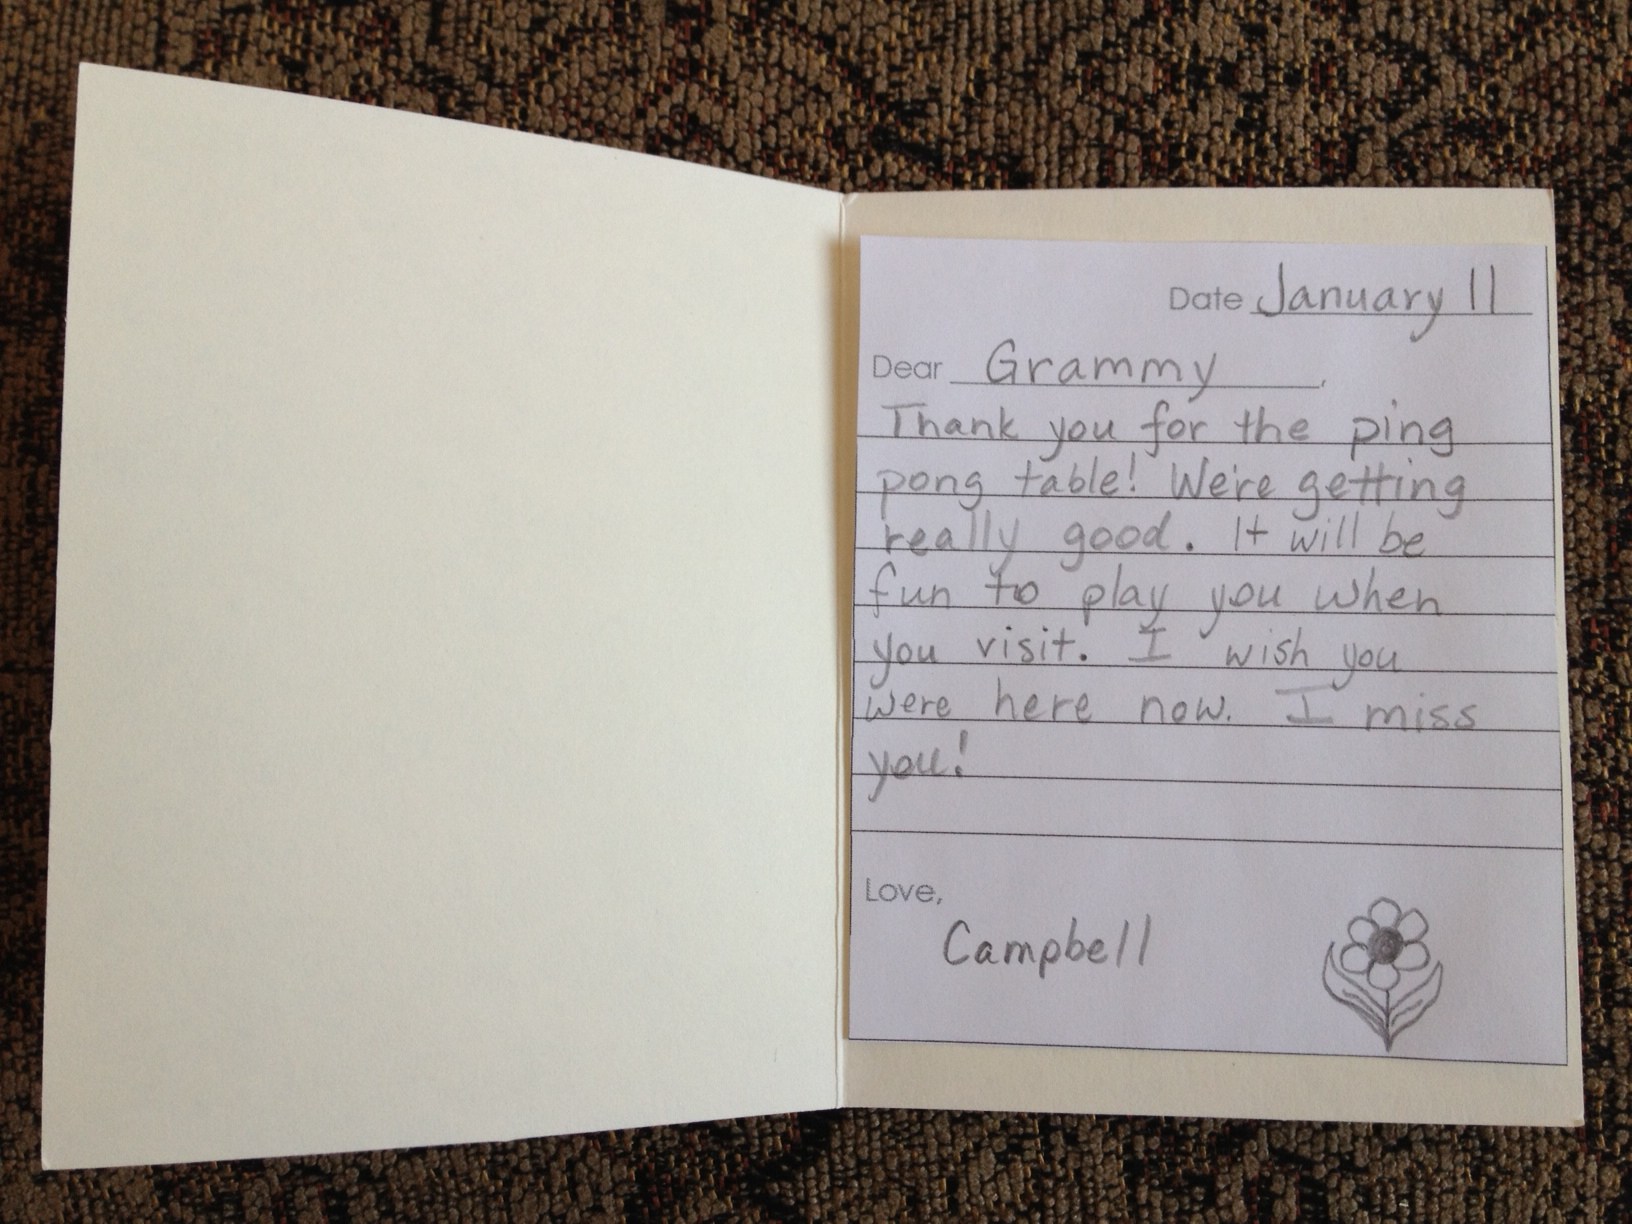 Date January 11
Dear Grammy,
Thank you for the ping
pong table! We're getting
really good. It will be
fun to play you when
you visit. I wish you
were here now. I miss
you!
Love,
Campbell